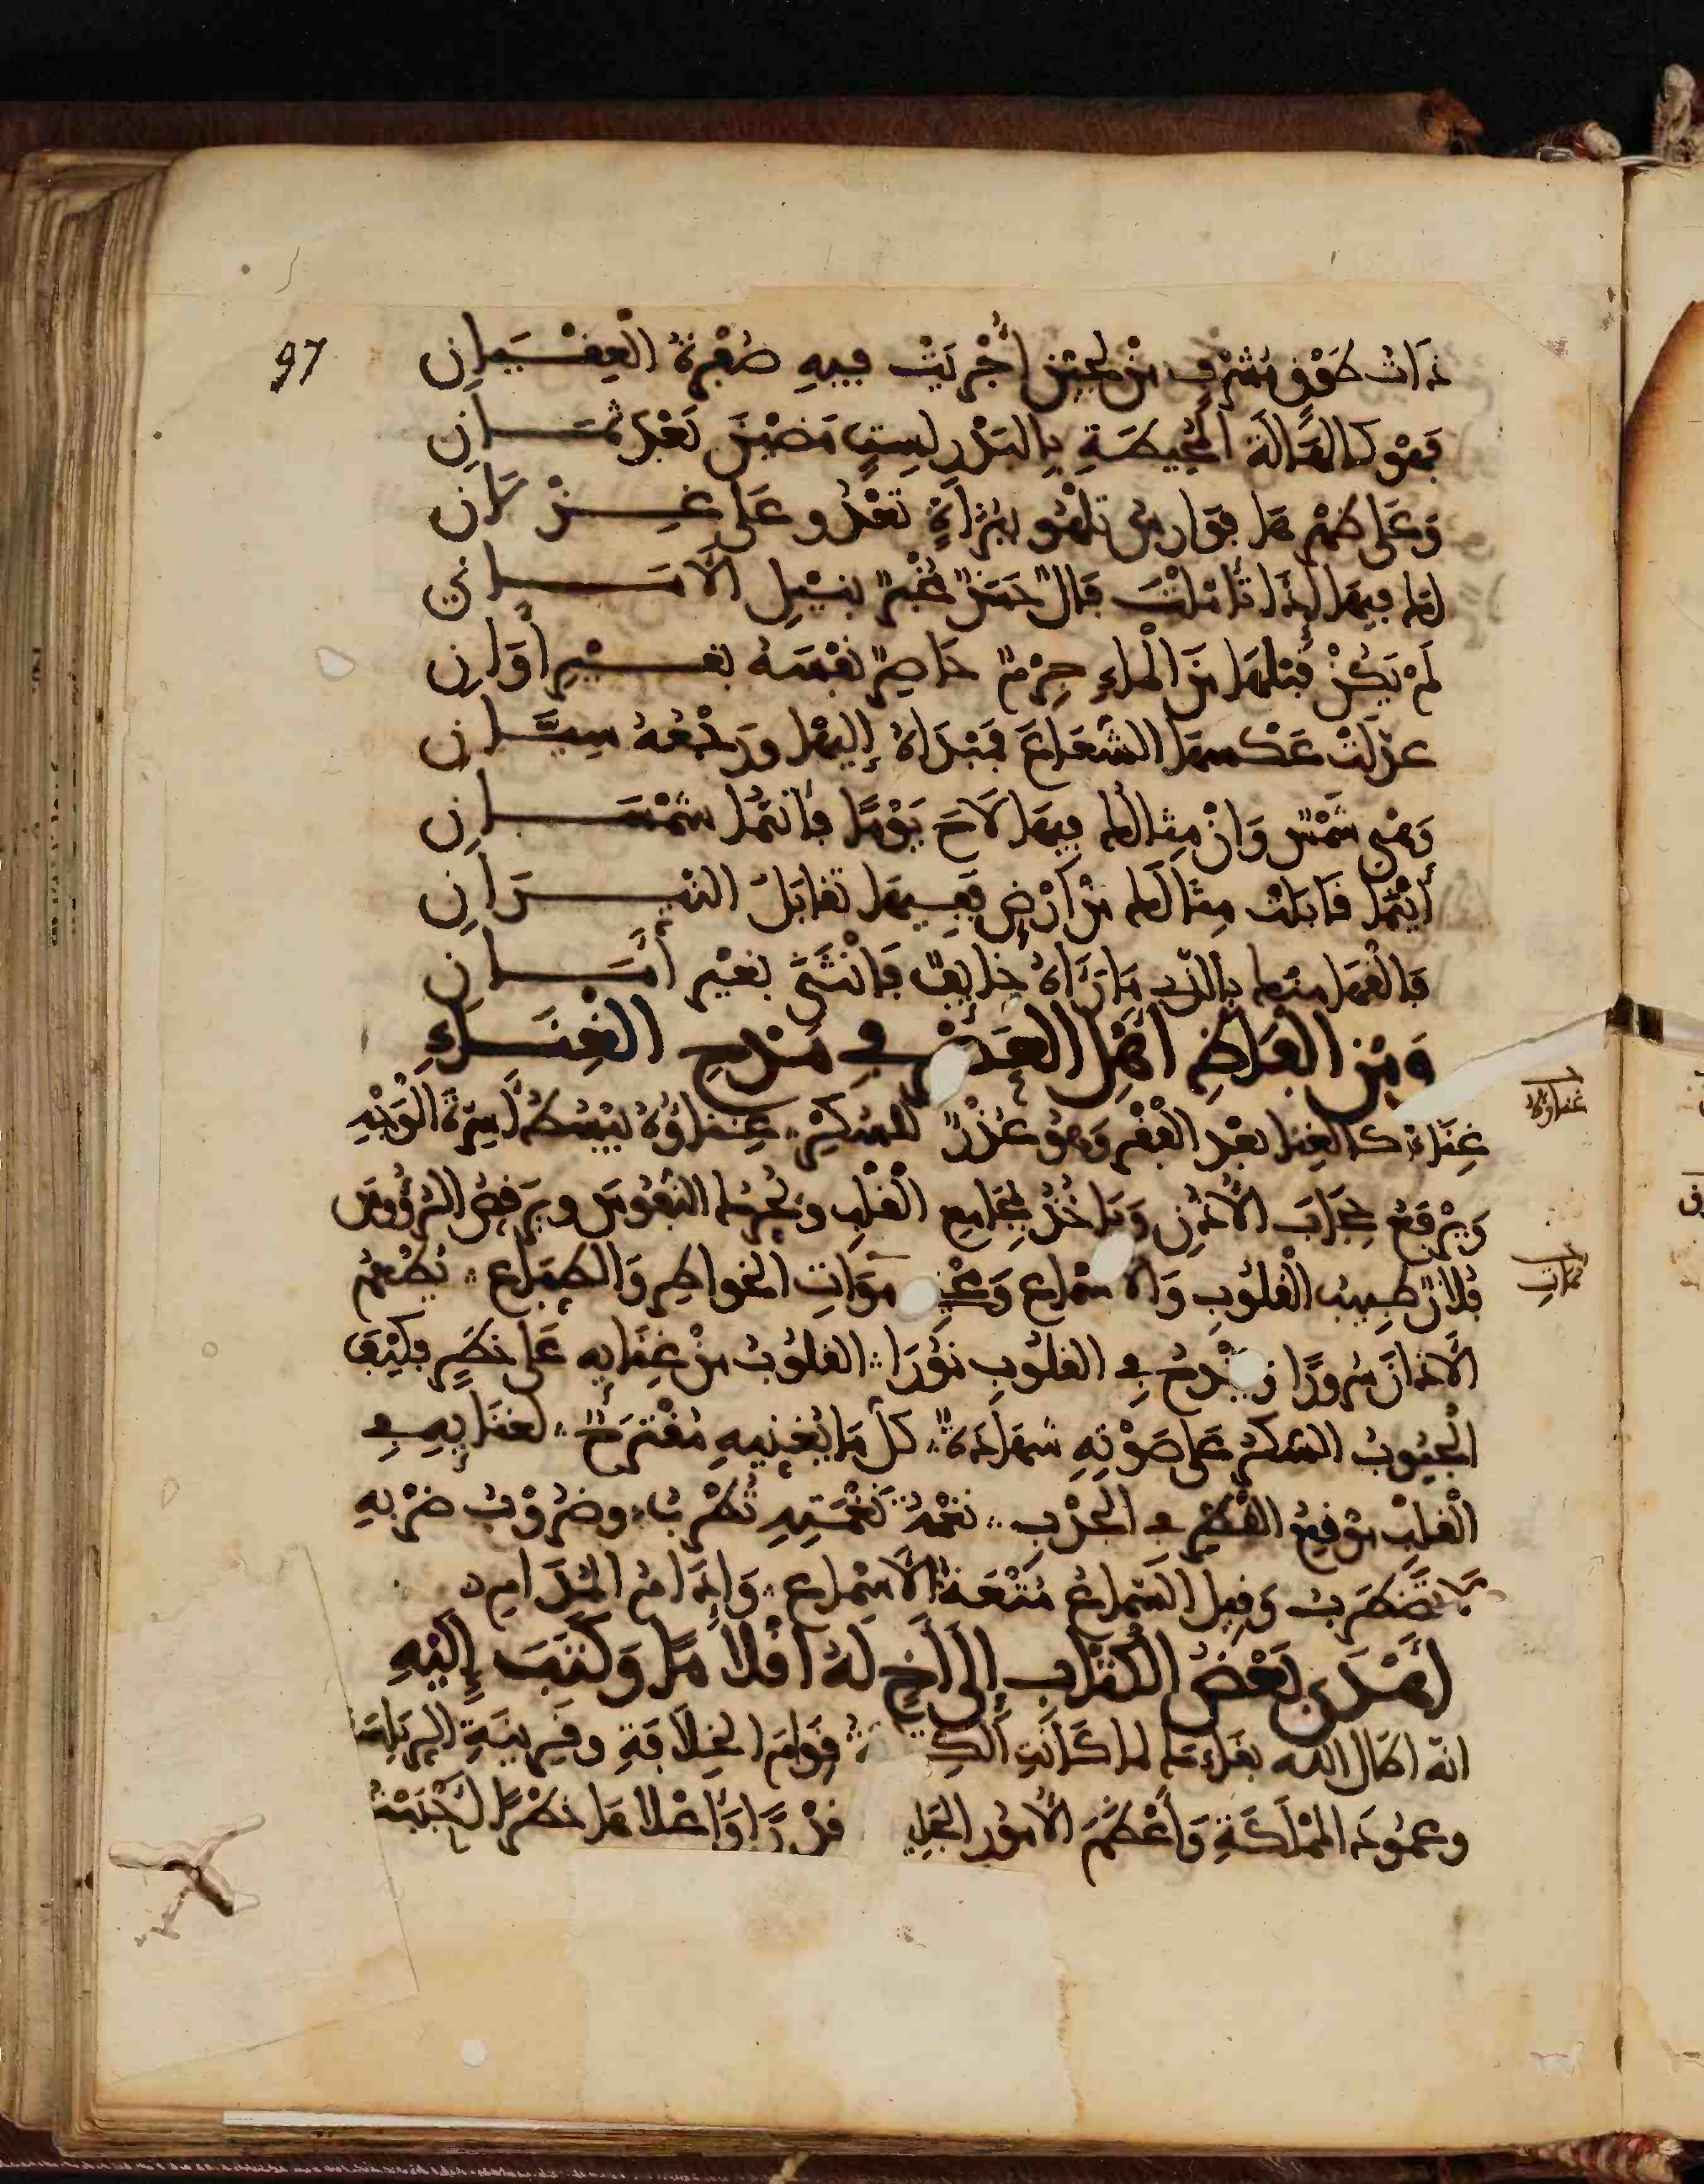 97
ذَاتُ طَوْقٍ مُشْرِفٍ مِنْ لُجَيْنٍ أُجْرِيَتْ فِيهِ صُفْرَةُ الْعِقْيَانِ
فَهْوَ كَالهَالَةِ الْمُحِيطَةِ بِالبَدْرِ لِسِتٍّ مَضَيْنَ بَعْدَ ثَمَانِ
وَعَلَى ظَهْرِهَا فَوَارِسُ تَلْهُو بِبُزَاةٍ تَعْدُو عَلَى غِزْلَانِ
لَهَا فِيهَا إِذَا تَأَمَّلْتَ فَالٌ حَسَنٌ مُخْبِرٌ بِنَيْلِ الْأَمَانِي
لَمْ يَكُنْ قَبْلَهَا مِنَ الْمَاءِ جِرْمٌ حَاصِرٌ نَفْسَهُ بِغَيْرِ أَوَانِ
عَدَلَتْ عَكْسَهَا الشُّعَاعَ فَمَبْدَاهُ إِلَيْهَا وَرَجْعُهُ سِيَّانِ
وَهْيَ شَمْسٌ وَإِنْ مِثَالُهَا فِيهَا لَاحَ يَوْمًا فَإِنَّمَا شَمْسَانِ
أَيْنَمَا قَابَلَتْ مِثَالَهَا مِنْ أَرْضٍ فَفِيهَا تَقَابَلَ النَّيِّرَانِ
فَالْقَهَا مِنْهَا بِالَّذِي مَا رَآهُ خَائِفٌ فَانْثَنَى بِغَيْرِ أَمَانِ
وَمِنَ الْفَاظِ أَهْلِ الْعَصْرِ فِي مَدْحِ الْغِنَاءِ
غِنَاءٌ كَالغِنَا بَعْدَ الْفَقْرِ وَهُوَ عُذْرٌ لِلسُّكْرِ غِنَاؤُهُ يَبْسُطُ أَسِرَّةَ الْوَجْهِ
غناوه
وَيَرْفَعُ حِجَابَ الْأُذُنِ وَيَأْخُذُ بِمَجَامِعِ الْقَلْبِ وَيُحَرِّكُ النُّفُوسَ وَيُرْقِصُ الرُّؤُوسَ
فُلَانٌ طَبِيبُ الْقُلُوبِ وَالْأَسْمَاعِ وَمُحْيِي مَوَاتِ الْخَوَاطِرِ وَالطِّبَاعِ يُطْعِمُ
الْآذَانَ سُرُورًا وَيَقْدَحُ فِي الْقُلُوبِ نُورًا الْقُلُوبُ مِنْ غِنَائِهِ عَلَى خَطَرٍ فَكَيْفَ
الْجُيُوبُ السُّكْرُ عَلَى صَوْتِهِ شَهَادَةٌ كُلُّ مَا يُغَنِّيهِ مُقْتَرَحٌ لِغِنَائِهِ فِي
الْقَلْبِ مَوْقِعُ الْقَطْرِ فِي الْجَدْبِ نَغْمَةُ نَغْمَتِهِ تُطْرِبُ وَضُرُوبُ ضَرْبِهِ
لَا تَضْطَرِبُ وَقِيلَ السَّمَاعُ مُتْعَةُ الْأَسْمَاعِ وَإِدَامُ الْمُدَامِ
أَهْدَى بَعْضُ الْكُتَّابِ إِلَى أَخٍ لَهُ أَقْلَامًا وَكَتَبَ إِلَيْهِ
إِنَّهُ أَطَالَ اللَّهُ بَقَاءَكَ لَمَّا كَانَتِ الْكِ قِوَامَ الْخِلَافَةِ وَقَرِينَةَ الرِّيَاسَةِ
وَعَمُودَ الْمَمْلَكَةِ وَأَعْظَمَ الْأُمُورِ الْجَلِي قَدْرًا وَأَعْلَاهَا خَطَرًا أَحْبَبْتُ